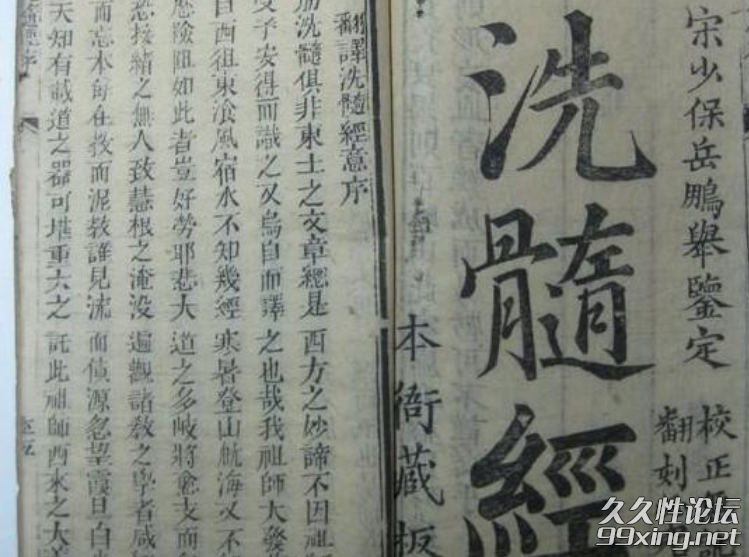 宋少保岳鵬舉鑒定
校正
翻刻
洗髓經
本衙藏板
翻譯洗髓經意序
筋洗髓俱非東土之文章總是西方之妙諦不因祖
受予安得而識之又烏自而譯之也哉我祖師大發
自西徂東飡風宿水不知幾經寒暑登山航海又不
歷險阻如此者豈好勞耶悲大道之多岐將愈支而
恐接緒之無人致慧根之淹沒遍觀諸教之學者咸
而忘本每在教而泥教誰見流而偵源忽望震旦白
天知有載道之器可堪重大之託此祖師西來之大
經序
久久性论坛
99xing.net